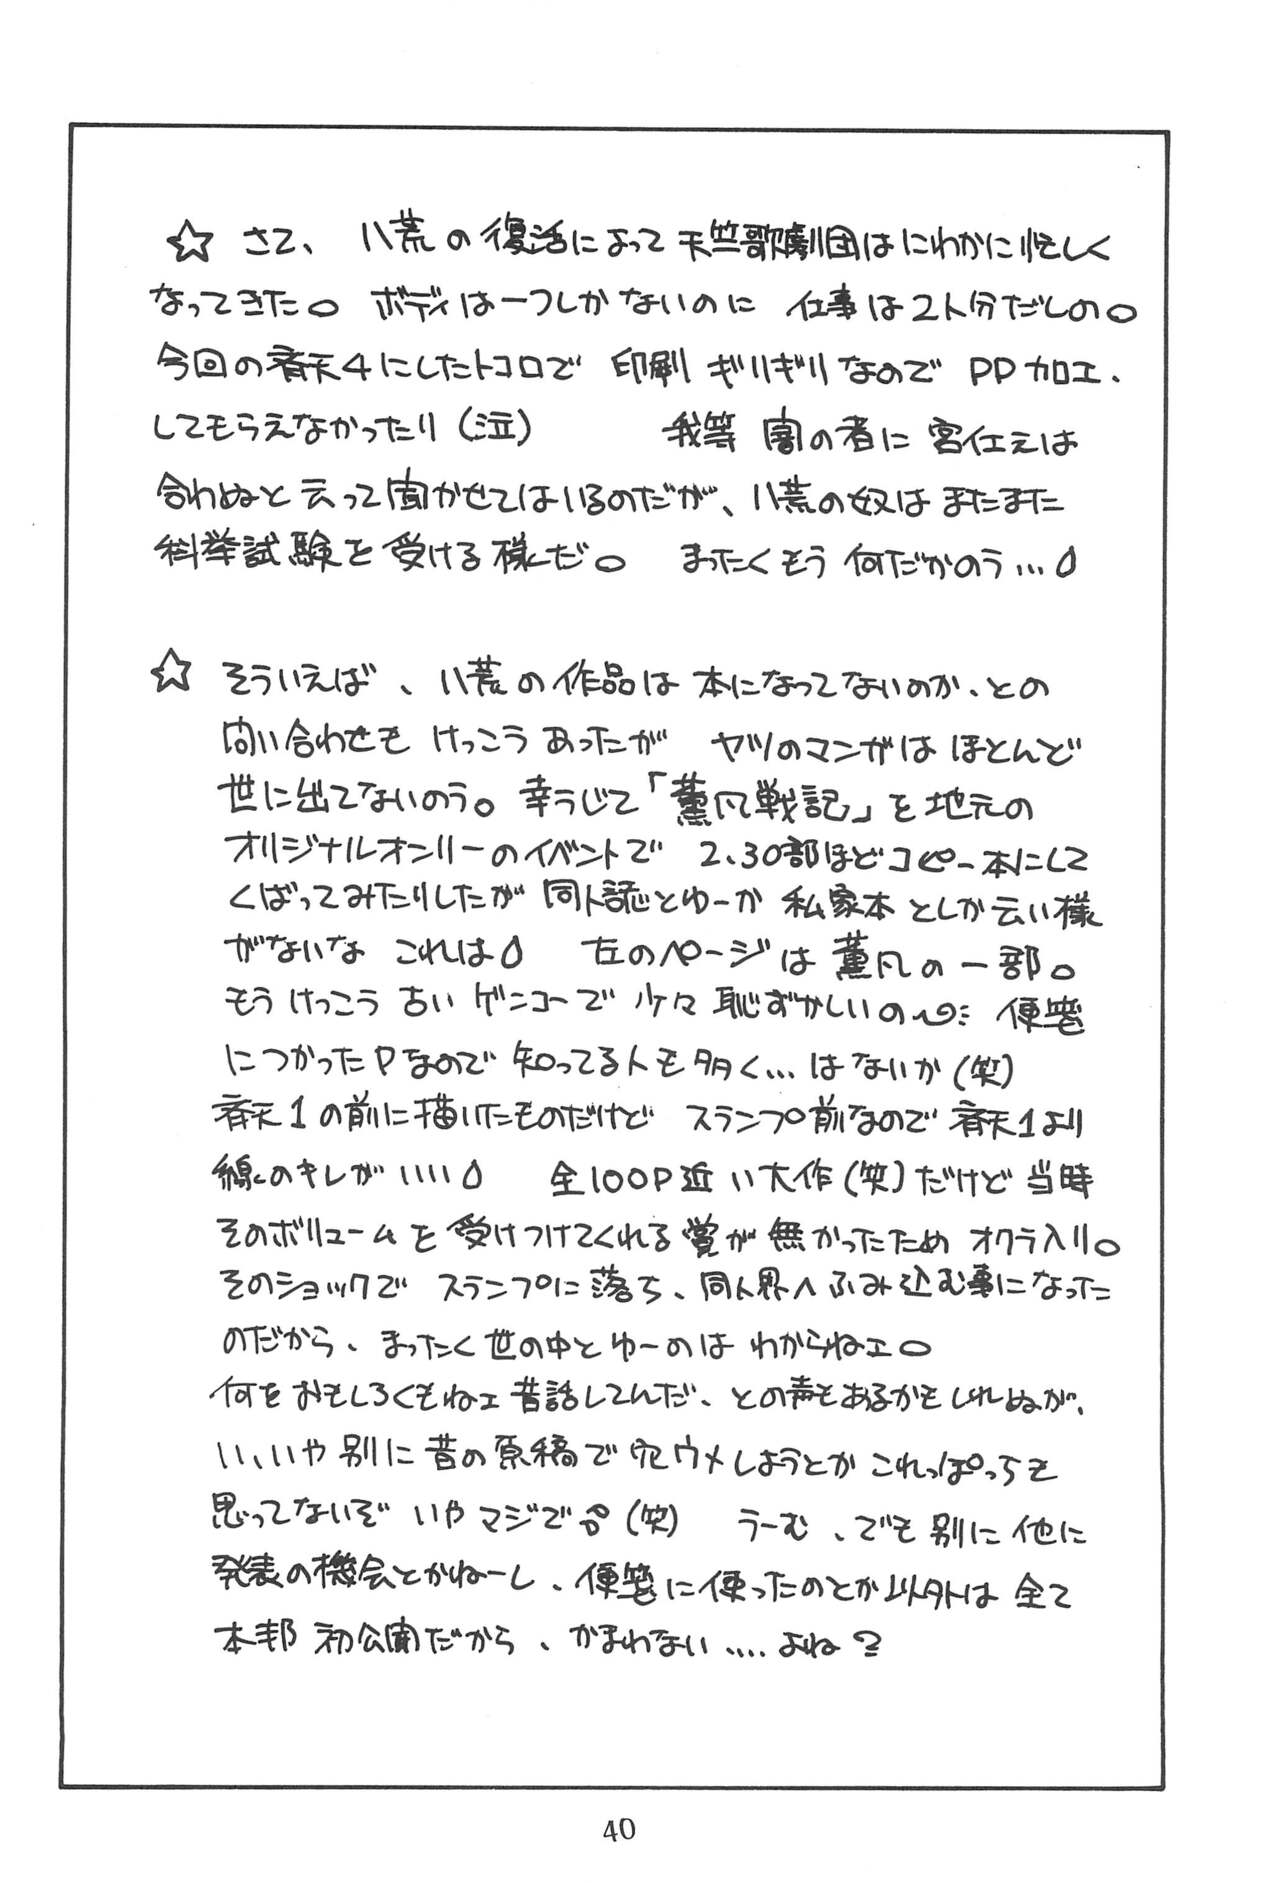 ☆ さて、八荒の復活によって天竺歌劇団はにわかに忙しく
なってきた。ボディは一つしかないのに 仕事は2人分だしの。
今回の斉天4にしたトコロで 印刷 ギリギリなので PP加工、
してもらえなかったり(泣) 我等 闇の者に 宮仕えは
合わぬと云って聞かせてはいるのだが、八荒の奴は またまた
科挙試験を受ける様だ。 まったくもう 何だかのう…
☆ そういえば、八荒の作品は本になってないのか、との
問い合わせも けっこう あったが ヤツのマンガは ほとんど
世に出てないのう。辛うじて「薫凡戦記」を 地元の
オリジナルオンリーのイベントで 2、30部ほどコピー本にして
くばってみたりしたが 同人誌とゆーか 私家本としか云い様
がないな これは 左のページは薫凡の一部。
もう けっこう 古い ゲンコーで 少々 恥ずかしいの〜 便箋
につかったPなので 知ってる人も多く…はないか(笑)
斉天1の前に描いたものだけど スランプ前なので斉天1より
線のキレがいい 全100P近い大作(笑)だけど 当時
そのボリュームを受けつけてくれる賞が無かったため オクラ入り。
そのショックで スランプに落ち、同人界へふみ込む事になった
のだから、まったく世の中とゆーのは わからねェ。
何をおもしろくもねェ昔話してんだ、との声もあるかもしれぬが、
い、いや別に昔の原稿で穴ウメしようとか これっぽっちも
思ってないぞ いや マジで (笑) うーむ、でも 別に 他に
発表の機会とかねーし、便箋に使ったのとか以外は 全て
本邦 初公開だから、かまわない‥‥よね?
40